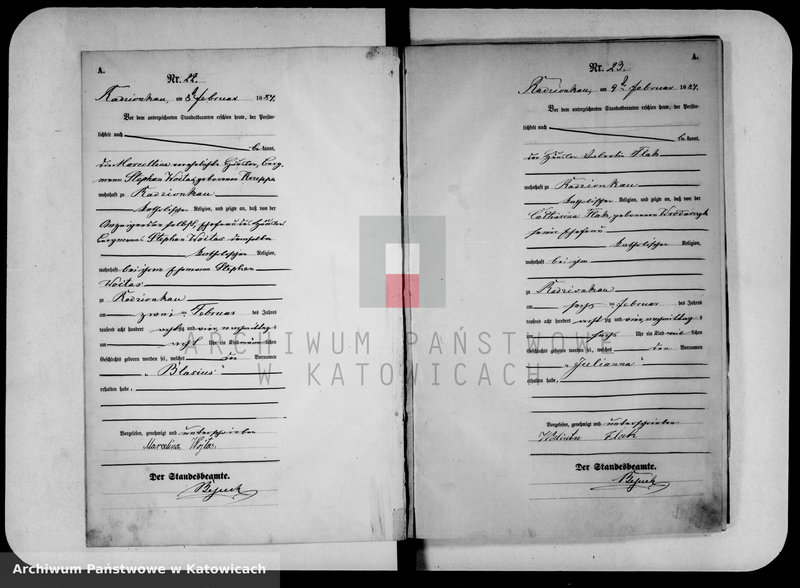 A.
Nr. 22.
Radzionkau, am 8 Februar 1884.
Vor dem unterzeichneten Standesbeamten erschien heute, der Persön-
lichkeit nach
bekannt,
die Marcellina verehelichte Häusler, Berg
mann Stephan Woitas, geborenen
wohnhaft zu Radzionkau
katholischer Religion, und zeigte an, daß von der
Anzeigenden selbst, Ehefrau des Häusler
Bergmann Stephan Woitas demselben
katholischer Religion,
wohnhaft bei ihrem Ehemann Stephan
Woitas
zu Radzionkau
am zwei ten Februar des Jahres
tausend acht hundert achtzig und vier, nachmittags
um acht Uhr ein Kind männlichen
Geschlechts geboren worden sei, welches den Vornamen
"Blasius"
erhalten habe.
Vorgelesen, genehmigt und unterschrieben
Marcelina Wojtas.
Der Standesbeamte.
A.
Nr. 23.
Radzionkau, am 9 Februar 1884.
Vor dem unterzeichneten Standesbeamten erschien heute, der Persön-
lichkeit nach
bekannt,
der Häusler Valentin Flak
wohnhaft zu Radzionkau
katholischer Religion, und zeigte an, daß von der
Catharina Flak, geborenen
seiner Ehefrau
katholischer Religion,
wohnhaft bei ihm
zu Radzionkau
am sechs ten Februar des Jahres
tausend acht hundert achtzig und vier, nachmittags
um sechs Uhr ein Kind weiblichen
Geschlechts geboren worden sei, welches den Vornamen
"Julianna"
erhalten habe.
Vorgelesen, genehmigt und unterschrieben
Flak
Der Standesbeamte.
ARCHIWUM PAŃSTWOWE
W KATOWICACH
Archiwum Państwowe w Katowicach